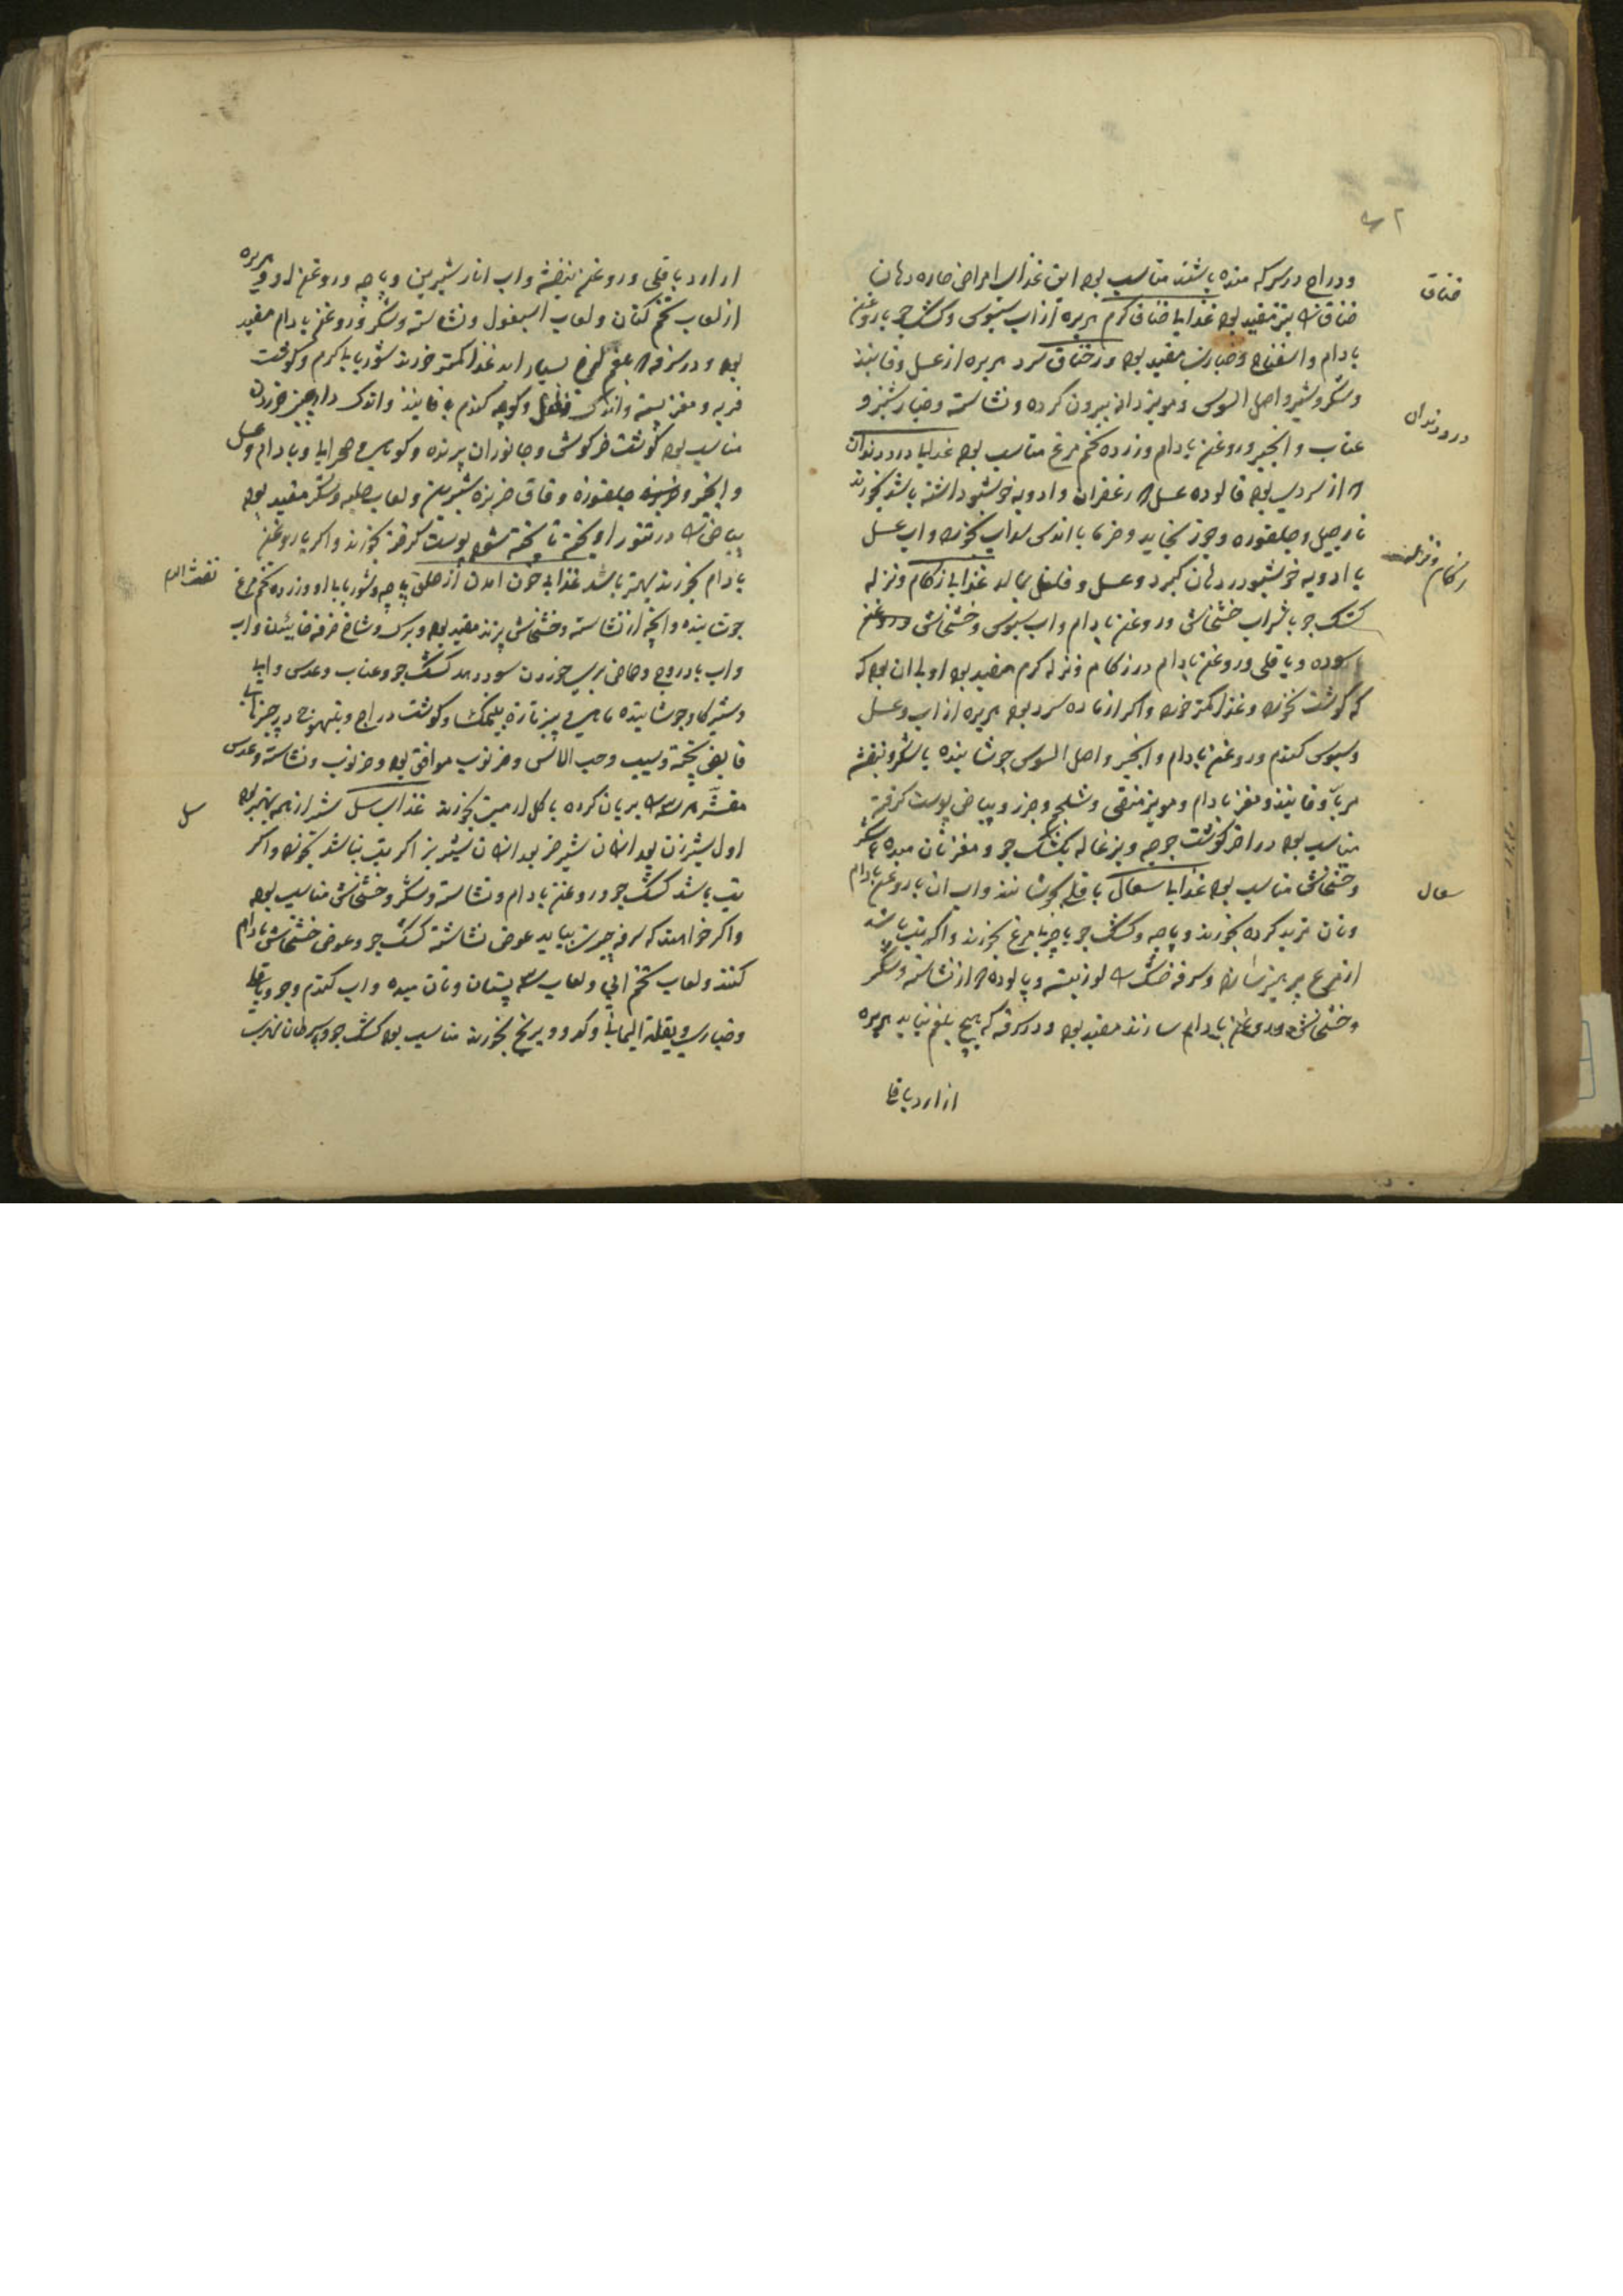 خناق
ودراج در سرکه مزه باشند مناسب بود این غذای امراض حاره دهان
خناق نیز مفید بود غذاهای خناق گرم هریره از آب سبوس و کشک جو با روغن
بادام و اسفناخ و خیارین مفید بود و در خناق سرد هریره از عسل و فانیذ
و شکر و شیر و اصل السوس و مویز دانه بیرون کرده و نشاسته و خیارشنبر و
درد دندان
عناب و انجیر و روغن بادام و زرده تخم مرغ مناسب بود غذاهای درد دندان
از سردی بود فالوده عسل زعفران و ادویه خوشبو داشته باشد بخورند
نارجیل و جلغوزه و جوز بخاید و خرما با اندکی سداب بخورد و آب عسل
زکام و نزله
با ادویه خوشبو در دهان گیرد و عسل و فلفل بمالد غذاهای زکام و نزله
کشک جو با شراب خشخاش و روغن بادام و آب سبوس و خشخاش و روغن
سوده و باقلی و روغن بادام در زکام و نزله گرم مفید بود اولی ان بود که
که گوشت نخورد و غذا کمتر خورد و اگر از ماده سرد بود هریره از آب و عسل
و سبوس گندم و روغن بادام و انجیر و اصل السوس جوشانیده با شکر و بنفشه
مربا و فانیذ و مغز بادام و مویز منقی و شلجم و جزر و بیاض پوست گرفته
مناسب بود در آخر گوشت جوجه و بزغاله بکشک جو و مغز نان میده و شکر
سعال
و خشخاش مناسب بود غذاهای سعال باقله بجوشانند و آب آن با روغن بادام
و نان ترید کرده بخورند و پاچه و کشک جو با چربی مرغ بخورند و اگر تب باشد
از مرغ پرهیز نماید و سرفه خشک لوزینه و پالوده از نشاسته و شکر
و خشخاش و روغن بادام سازند مفید بود و در سرفه که هیچ بلغم نیاید هریره
از ارد باقلی
از ارد باقلی و روغن بنفشه و آب انار شیرین و پاچه و روغن او و هریره
از لعاب تخم کتان و لعاب اسبغول و نشاسته و شکر و روغن بادام مفید
بود و در سرفه بلغم لزج بسیار آید غذا کمتر خورند شوربای گرم و گوشت
فربه و مغز پسته و اندک فلفل و کوچه گندم با فانیذ و اندک دارچین خوردن
مناسب بود گوشت خرگوش و جانوران پرنده و کوهی و صحرایی و بادام و عسل
و انجیر و جلغوزه و قاق خربزه شیرین و لعاب حلبه و شکر مفید بود
بیاض در تنور آویخته تا پخته شود پوست گرفته بخورند و اگر با روغن
نفث الدم
بادام بخورند بهتر باشد غذای خون آمدن از حلق پاچه و شوربای او و زرده تخم مرغ
جوشانیده و آنچه از نشاسته و خشخاش پزند مفید بود و برگ و شاخ خرفه خاییدن و آب
و آب بادروج و حماض بری خوردن سود دهد کشک جو و عناب و عدس و
و شیر گاو جوشانیده و پنیر تازه بی نمک و گوشت دراج و تیهوج در چیزهای
قابض پخته و سیب و حب الآس و خرنوب موافق بود و خرنوب و نشاسته و عدس
سل
مقشر بریان کرده با گل ارمنی بخورند غذای سل شیر از همه بهتر بود
اول شیر زن بعد از آن شیر خر بعد از آن شیر بز اگر تب نباشد بخورد و اگر
تب باشد کشک جو و روغن بادام و نشاسته و شکر و خشخاش مناسب بود
و اگر خواهند که سرفه بیاید عوض نشاسته کشک جو و عوض خشخاش بادام
کنند و لعاب تخم آبی و لعاب سپستان و نان میده و آب گندم و جو و باقلی
و خیارین و بقلة الیمانی و کدو و برنج بخورند مناسب بود کشک جو و سرطان نهری